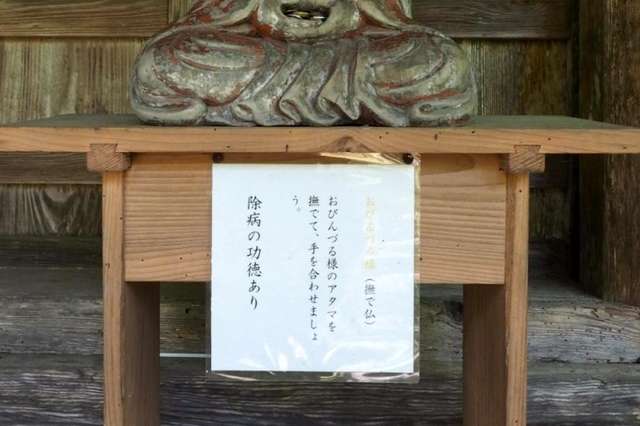 おびんづる様（撫で仏）
おびんづる様のアタマを
撫でて、手を合わせましょ
う。
除病の功徳あり